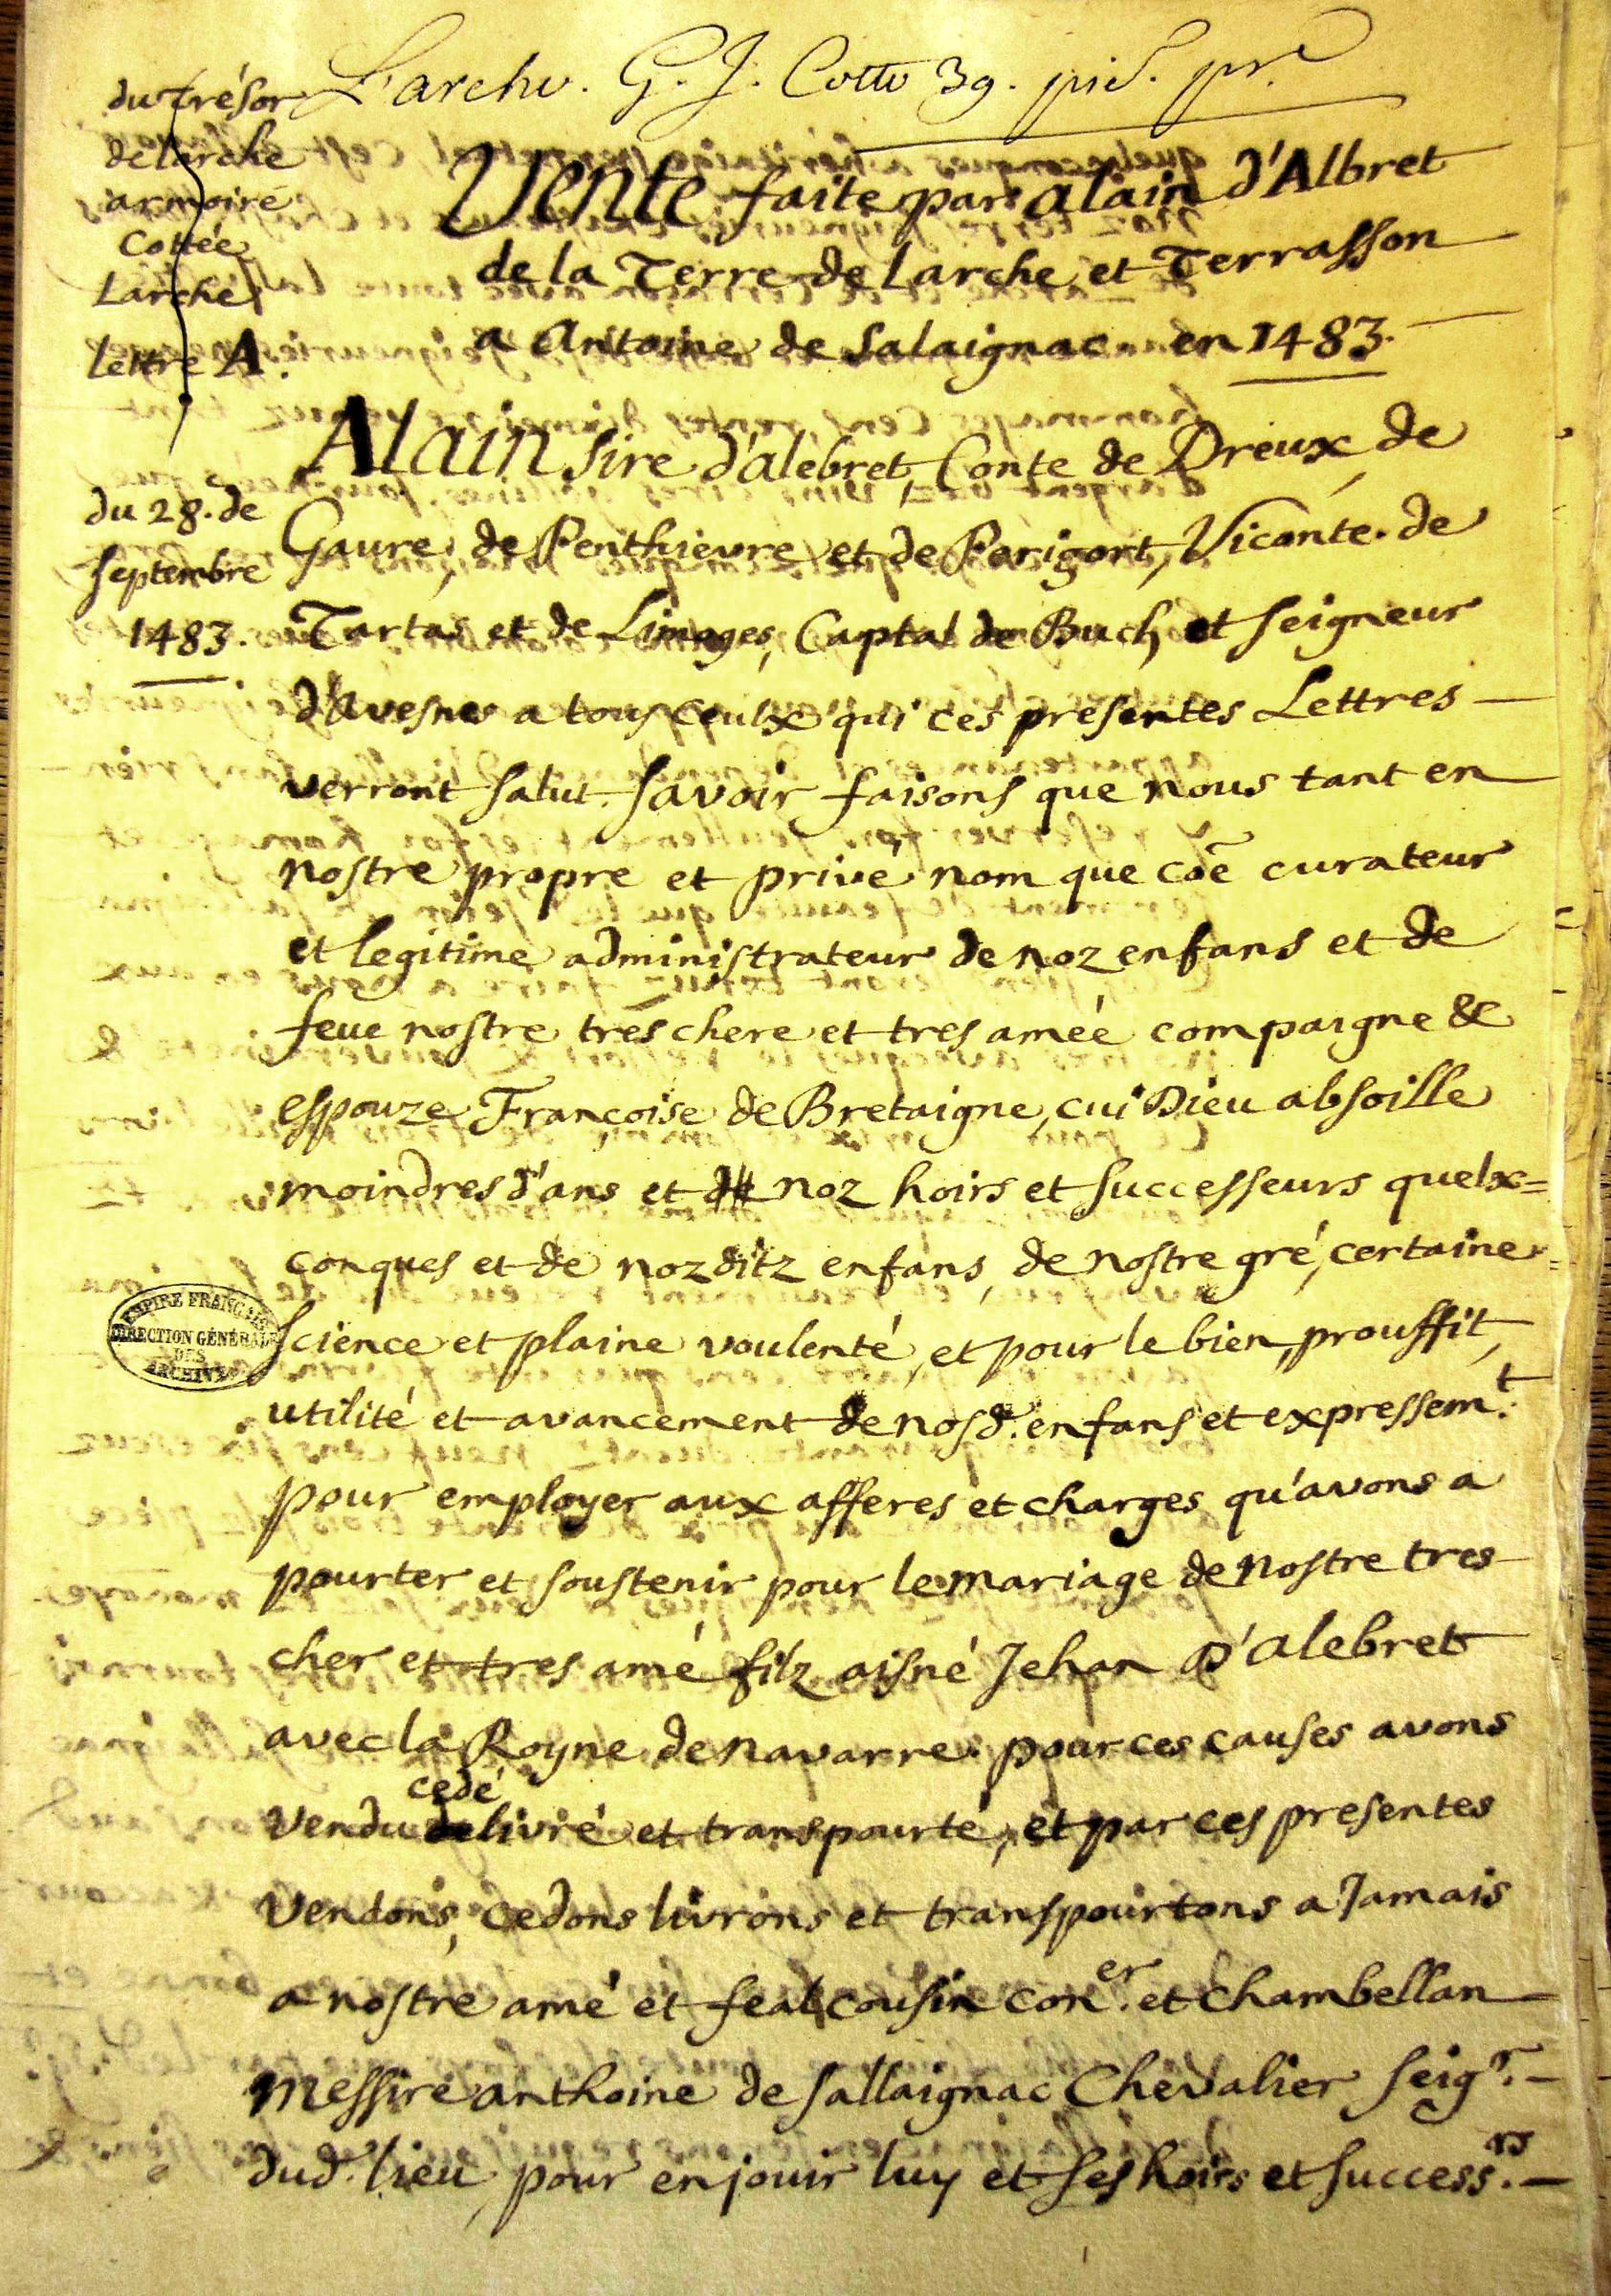 Larche. G. J. Cotte 39. pie. pre.
du trésor
de larche
armoire
Cottée
Larche
lettre A.
Vente faite par alain d'Albret
de la Terre de Larche et Terrasson
a Antoine de Salaignac en 1483.
du 28. de
septembre
1483.
Alain Sire d'alebret, Conte de Dreux, de
Gaure, de Penthievre et de Perigort, Viconte de
Tartas et de Limoges, Captal de Buch et seigneur
d'Avesnes a tous ceulx qui ces presentes Lettres
verront salut. savoir faisons que nous tant en
nostre propre et privé nom que cõe curateur
et legitime administrateur de noz enfans et de
feue nostre tres chere et tres ameé compaigne &
espouze Francoise de Bretaigne, cui Dieu absoille
moindres d'ans et de noz hoirs et successeurs quelx=
conques et de nozditz enfans, de nostre gré, certaine
science et plaine voulenté, et pour le bien, prouffit,
utilité et avancement de nosd. enfans et expressem.t
pour employer aux afferes et charges qu'avons a
pourter et soustenir pour le mariage de nostre tres
cher et tres amé filz aisné Jehan D'alebret
avec la Royne de navarre. pour ces causes avons
cedé
vendu delivré et transpourté, et par ces presentes
vendons, cedons livrons et transpourtons a Jamais
a nostre amé et feal cousin con.er et Chambellan
Messire anthoine de Sallaignac Chevalier seig.r
dud. lieu, pour en jouir luy et ses hoirs et success.rs
EMPIRE FRANÇAIS
DIRECTION GÉNÉRALE
DES
ARCHIVES